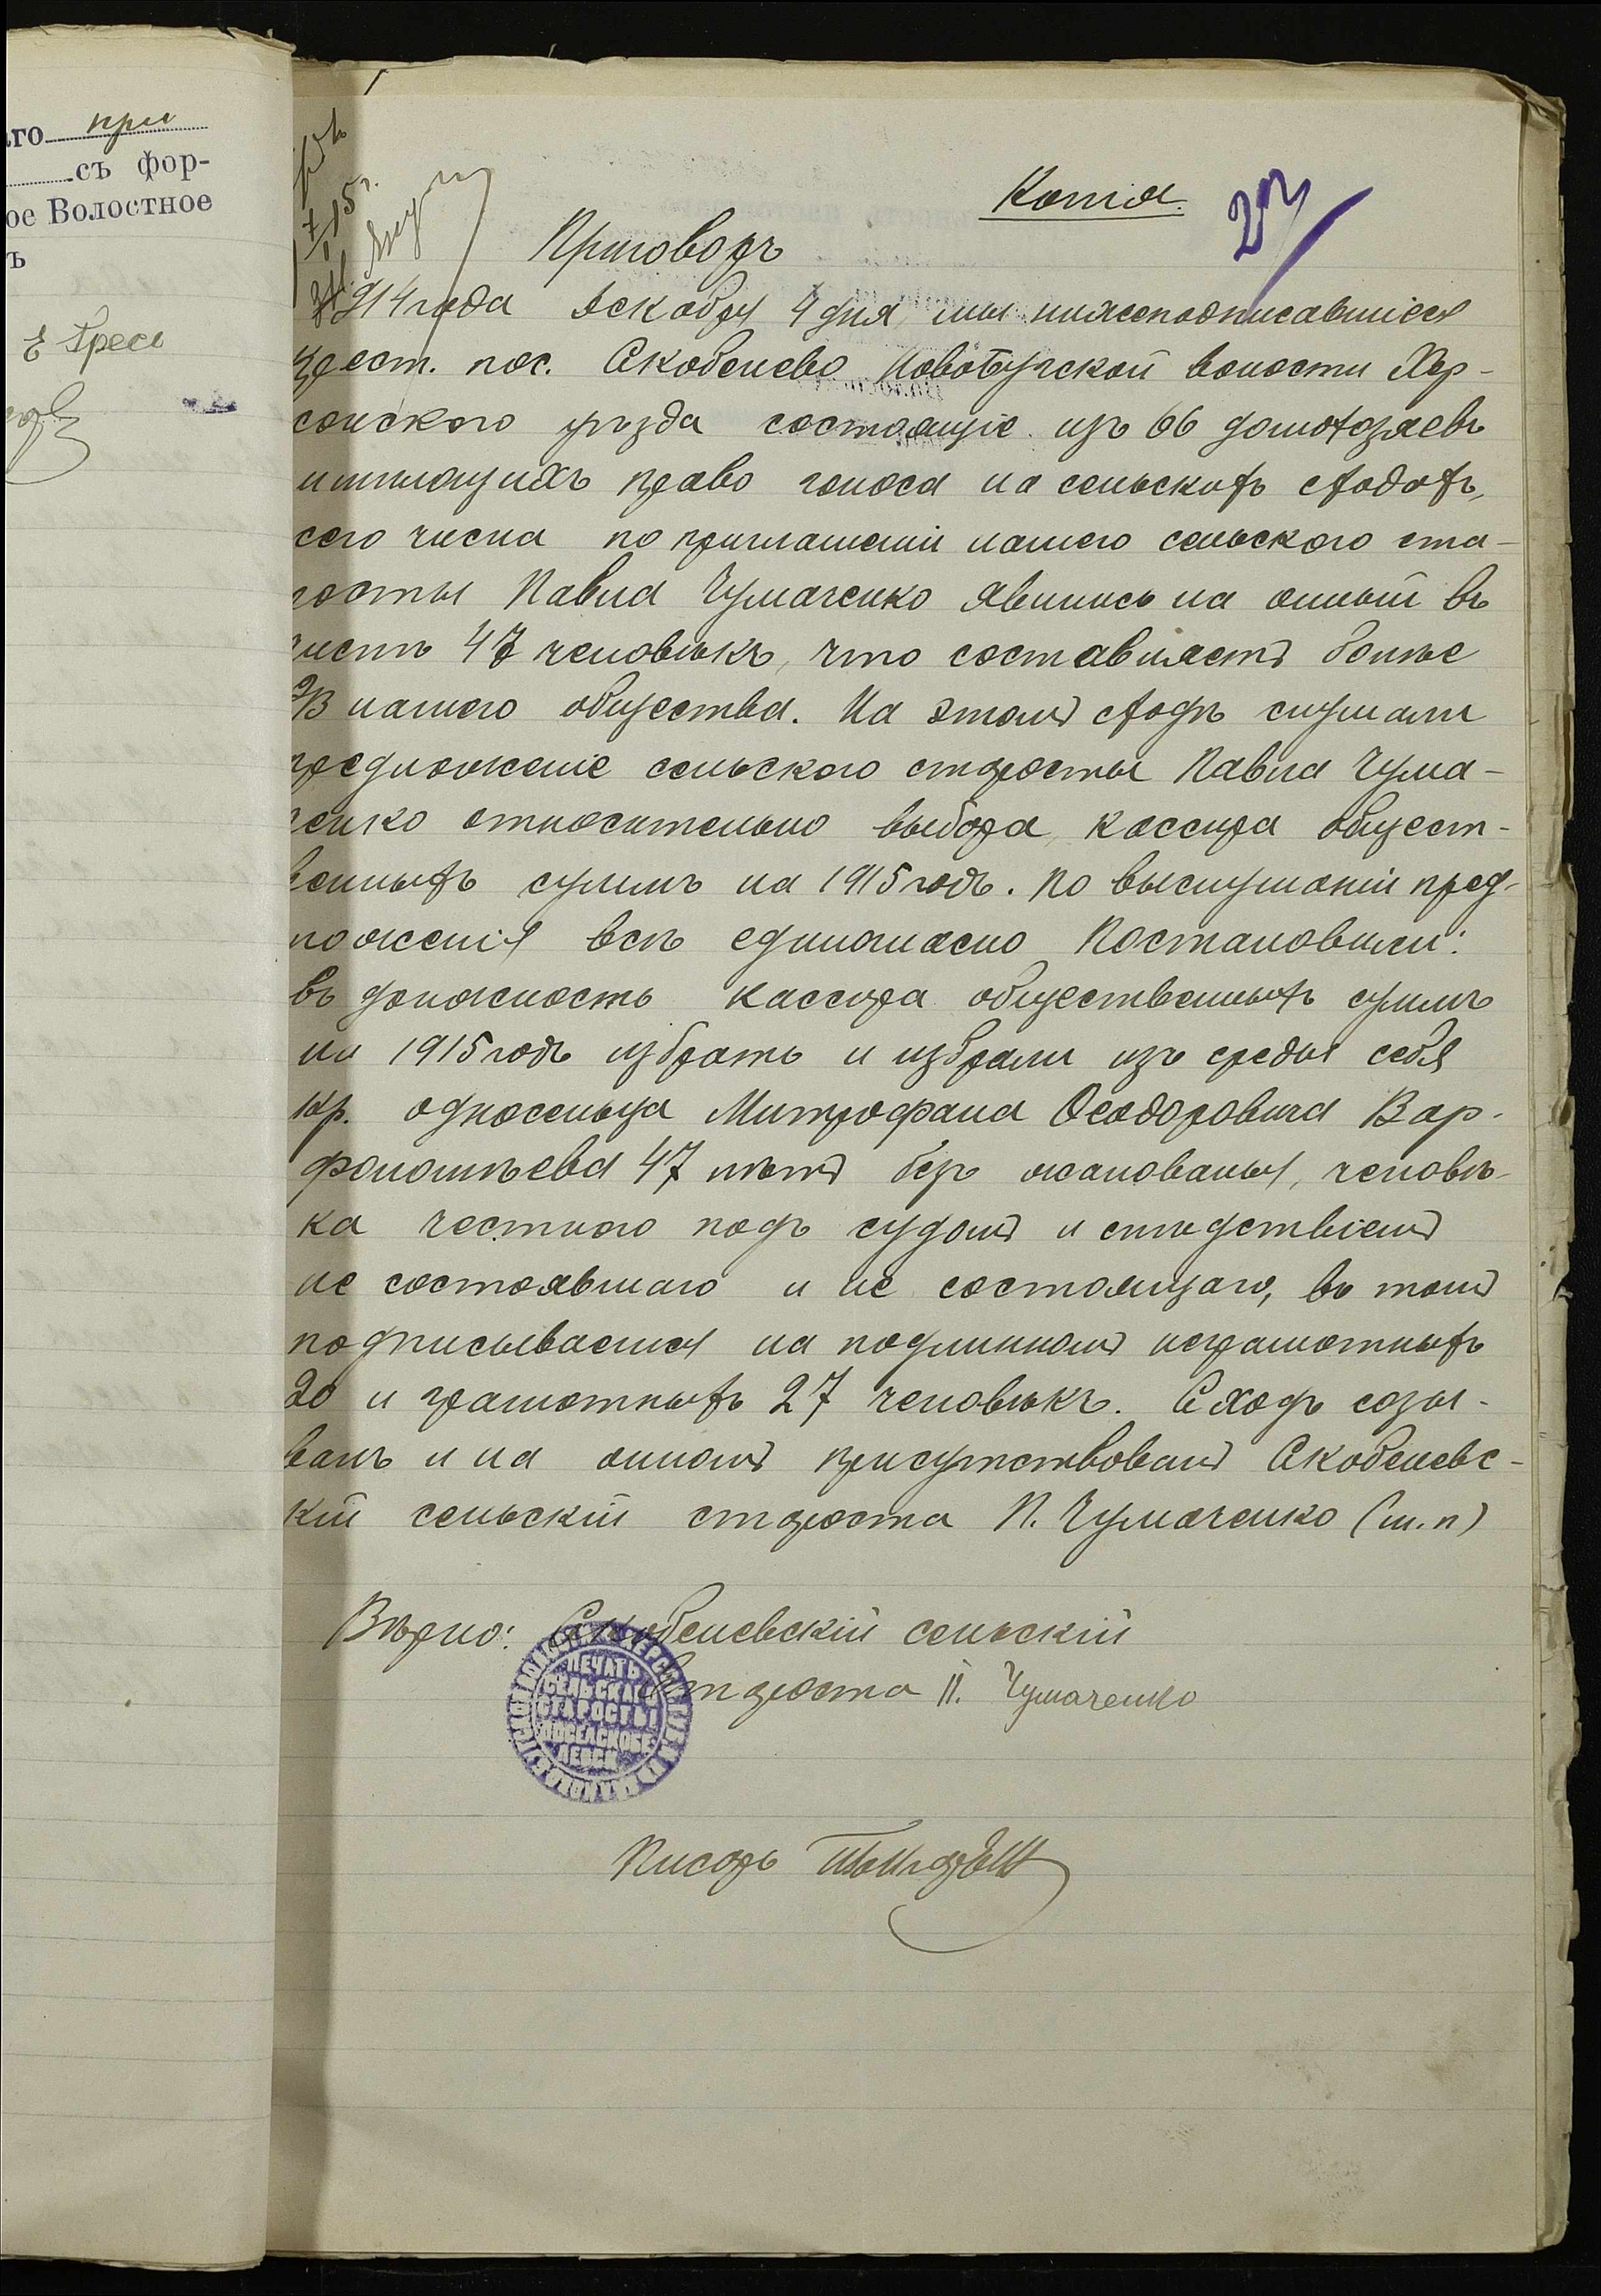 аго при
съ фор-
ое Волостное
ъ
Копія.
Приговоръ
1914 года декабря 4 дня, мы нижеподписавшіеся
крест. пос. Скобелево Новобугской волости Хер-
сонского уѣзда состоящіе изъ 66 домохозяевъ
имѣющихъ право голоса на сельскихъ сходахъ,
сего числа по приглашенію нашего сельского ста-
росты Павла Чумаченко явились на оный въ
числѣ 47 человѣкъ, что составляетъ болѣе
2/3 нашего общества. На этомъ сходѣ слушали
предложеніе сельского старосты Павла Чума-
ченко относительно выбора кассира общест-
венныхъ суммъ на 1915 годъ. По выслушаніи пред-
ложенія всѣ единогласно Постановили:
въ должность кассира общественныхъ суммъ
на 1915 годъ избрать и избрали изъ среды себя
кр. односельца Митрофана Ѳеодоровича Вар-
фоломѣева 47 лѣтъ безъ жалованья, человѣ-
ка честного подъ судомъ и слѣдствіемъ
не состоявшаго и не состоящаго, въ томъ
подписываемся на подлинномъ неграмотныхъ
20 и грамотныхъ 27 человѣкъ. Сходъ созы-
валъ и на ономъ присутствовалъ Скобелевс-
кій сельскій староста П. Чумаченко (м.п)
Вѣрно: Скобелевскій сельскій
Староста П. Чумаченко
ПЕЧАТЬ
СЕЛЬСКАГО
СТАРОСТЫ
ПОСЕЛ.СКОБЕ
ЛЕВСК
Писарь